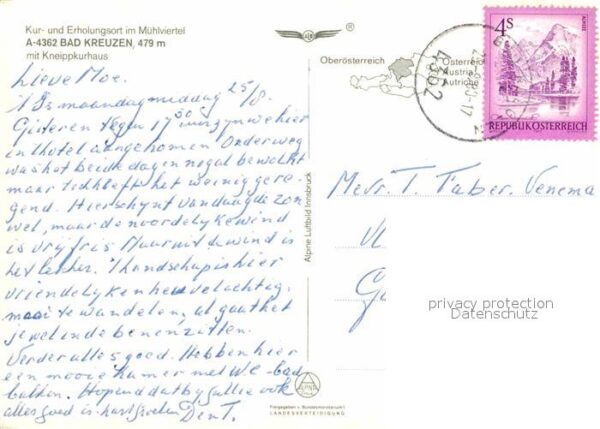 Kur- und Erholungsort im Mühlviertel
A-4362 BAD KREUZEN, 479 m
mit Kneippkurhaus
Lieve Moe.
't Is maandagmiddag 25/8.
Gisteren tegen 17 30 uur zyn we hier
in 't hotel aangekomen Onderweg
was het beide dagen nogal bewolkt
maar tidh heeft het weinig gere-
gend. Hier schynt vandaag de zon
wel, maar de noordelyke wind
is vry fris Maar uit de wind is
het lekker. 't Landschap is hier
vriendelyk en heuvelachtig.
mooi te wandelen, al gaat het
je wel in de benen zitten.
Verder alles goed. Hebben hier
een mooie kamer met WC - bad
balkon. Hopend dat by jullie ook
alles goed is. hart. groeten D en T.
Oberösterreich
Österreich
Austria
Autriche
4362
4S
APRIL
REPUBLIK ÖSTERREICH
Alpine Luftbild Innsbruck
Mevr. T. Faber. Venema
privacy protection
Datenschutz
Freigegeben v. Bundesministerium f.
LANDESVERTEIDIGUNG